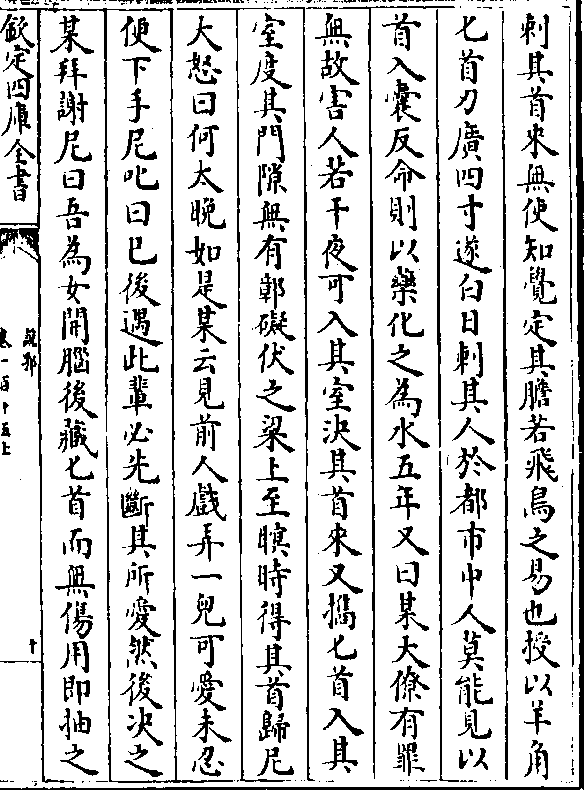 刺其首來無使知覺定其膽若飛鳥之易也授以羊角
匕首刀廣四寸遂白日刺其人於都市中人莫能見以
首入囊反命則以藥化之為水五年又曰某大僚有罪
無故害人若干夜可入其室決其首來又攜匕首入其
室度其門隙無有鄣礙伏之梁上至瞑時得其首歸尼
大怒曰何太晚如是某云見前人戲弄一兒可愛未忍
便下手尼叱曰已後遇此輩必先斷其所愛然後決之
某拜謝尼曰吾為女開腦後藏匕首而無傷用即抽之
欽定四庫全書
說郛
卷一百十五上
十